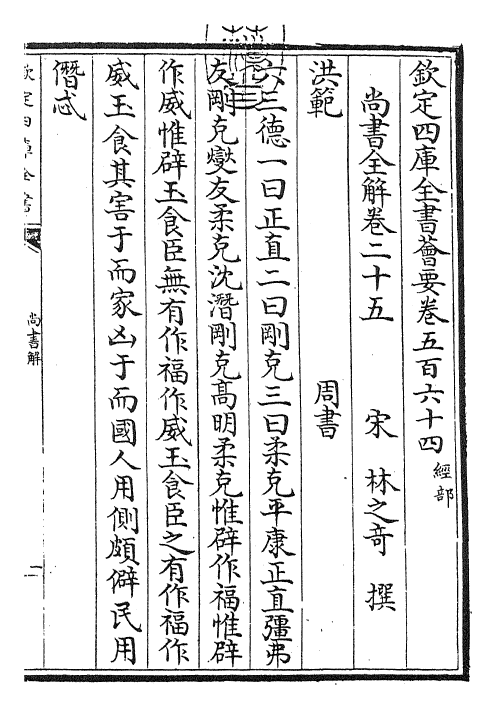 欽定四庫全書薈要卷五百六十四 經部
尚書全解卷二十五 宋 林之奇 撰
洪範 周書
六三德一曰正直二曰剛克三曰柔克平康正直彊弗
友剛克燮友柔克沈潛剛克髙明柔克惟辟作福惟辟
作威惟辟玉食臣無有作福作威玉食臣之有作福作
威玉食其害于而家凶于而國人用側頗僻民用
僭忒
尚書解